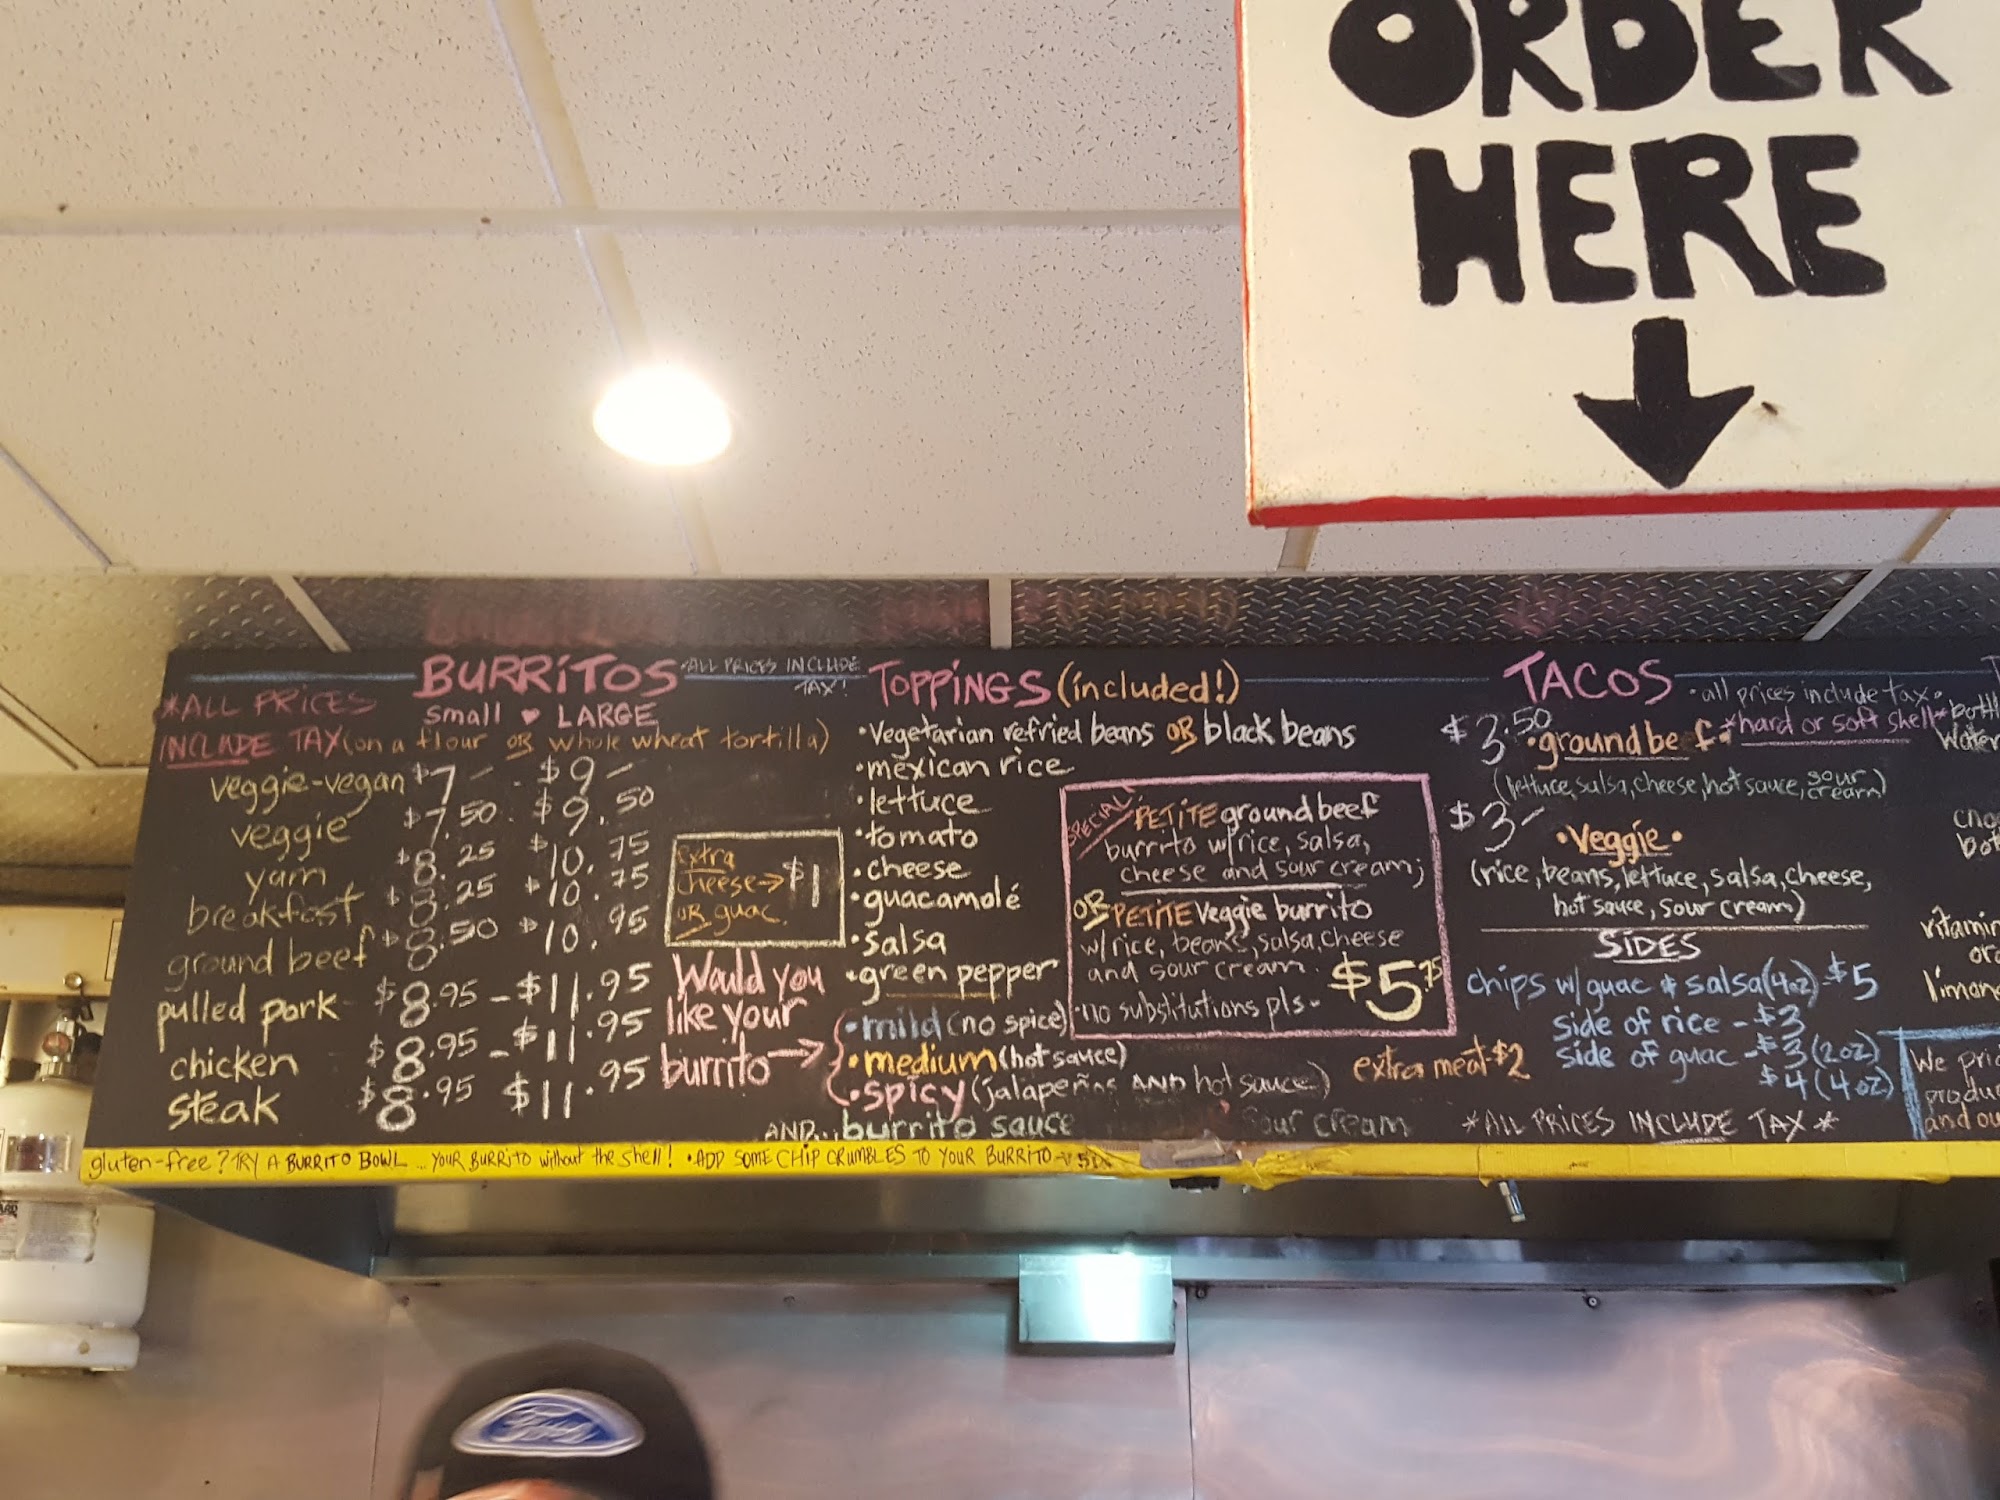 ORDER
HERE
BURRITOS
*ALL PRICES INCLUDE
TAX!
*ALL PRICES
INCLUDE TAX
small ♥ LARGE
(on a flour OR whole wheat tortilla)
veggie-vegan $7- $9-
veggie $7.50 $9.50
yam $8.25 $10.75
breakfast $8.25 $10.75
ground beef $8.50 $10.95
pulled pork - $8.95 - $11.95
chicken $8.95 - $11.95
steak $8.95 $11.95
extra
cheese → $1
OR guac.
Would you
like your
burrito →
TOPPINGS (included!)
• Vegetarian refried beans OR black beans
• mexican rice
• lettuce
• tomato
• cheese
• guacamolé
• salsa
• green pepper
• mild (no spice)
• medium (hot sauce)
• spicy (jalapeños AND hot sauce)
AND... burrito sauce
sour cream
SPECIAL!
PETITE ground beef
burrito w/rice, salsa,
cheese and sour cream;
OR PETITE veggie burrito
w/rice, beans, salsa, cheese
and sour cream. $5.75
• no substitutions pls -
extra meat $2
TACOS • all prices include tax •
$3.50 • ground beef • *hard or soft shell*
(lettuce, salsa, cheese, hot sauce, sour cream)
$3-
• Veggie •
(rice, beans, lettuce, salsa, cheese,
hot sauce, sour cream)
SIDES
chips w/ guac & salsa (4oz) $5
side of rice - $3
side of guac - $3 (2oz)
$4 (4oz)
*ALL PRICES INCLUDE TAX*
Water
limon
We
and
gluten-free? TRY A BURRITO BOWL ... YOUR BURRITO without the shell! • ADD SOME CHIP CRUMBLES TO YOUR BURRITO
Ford